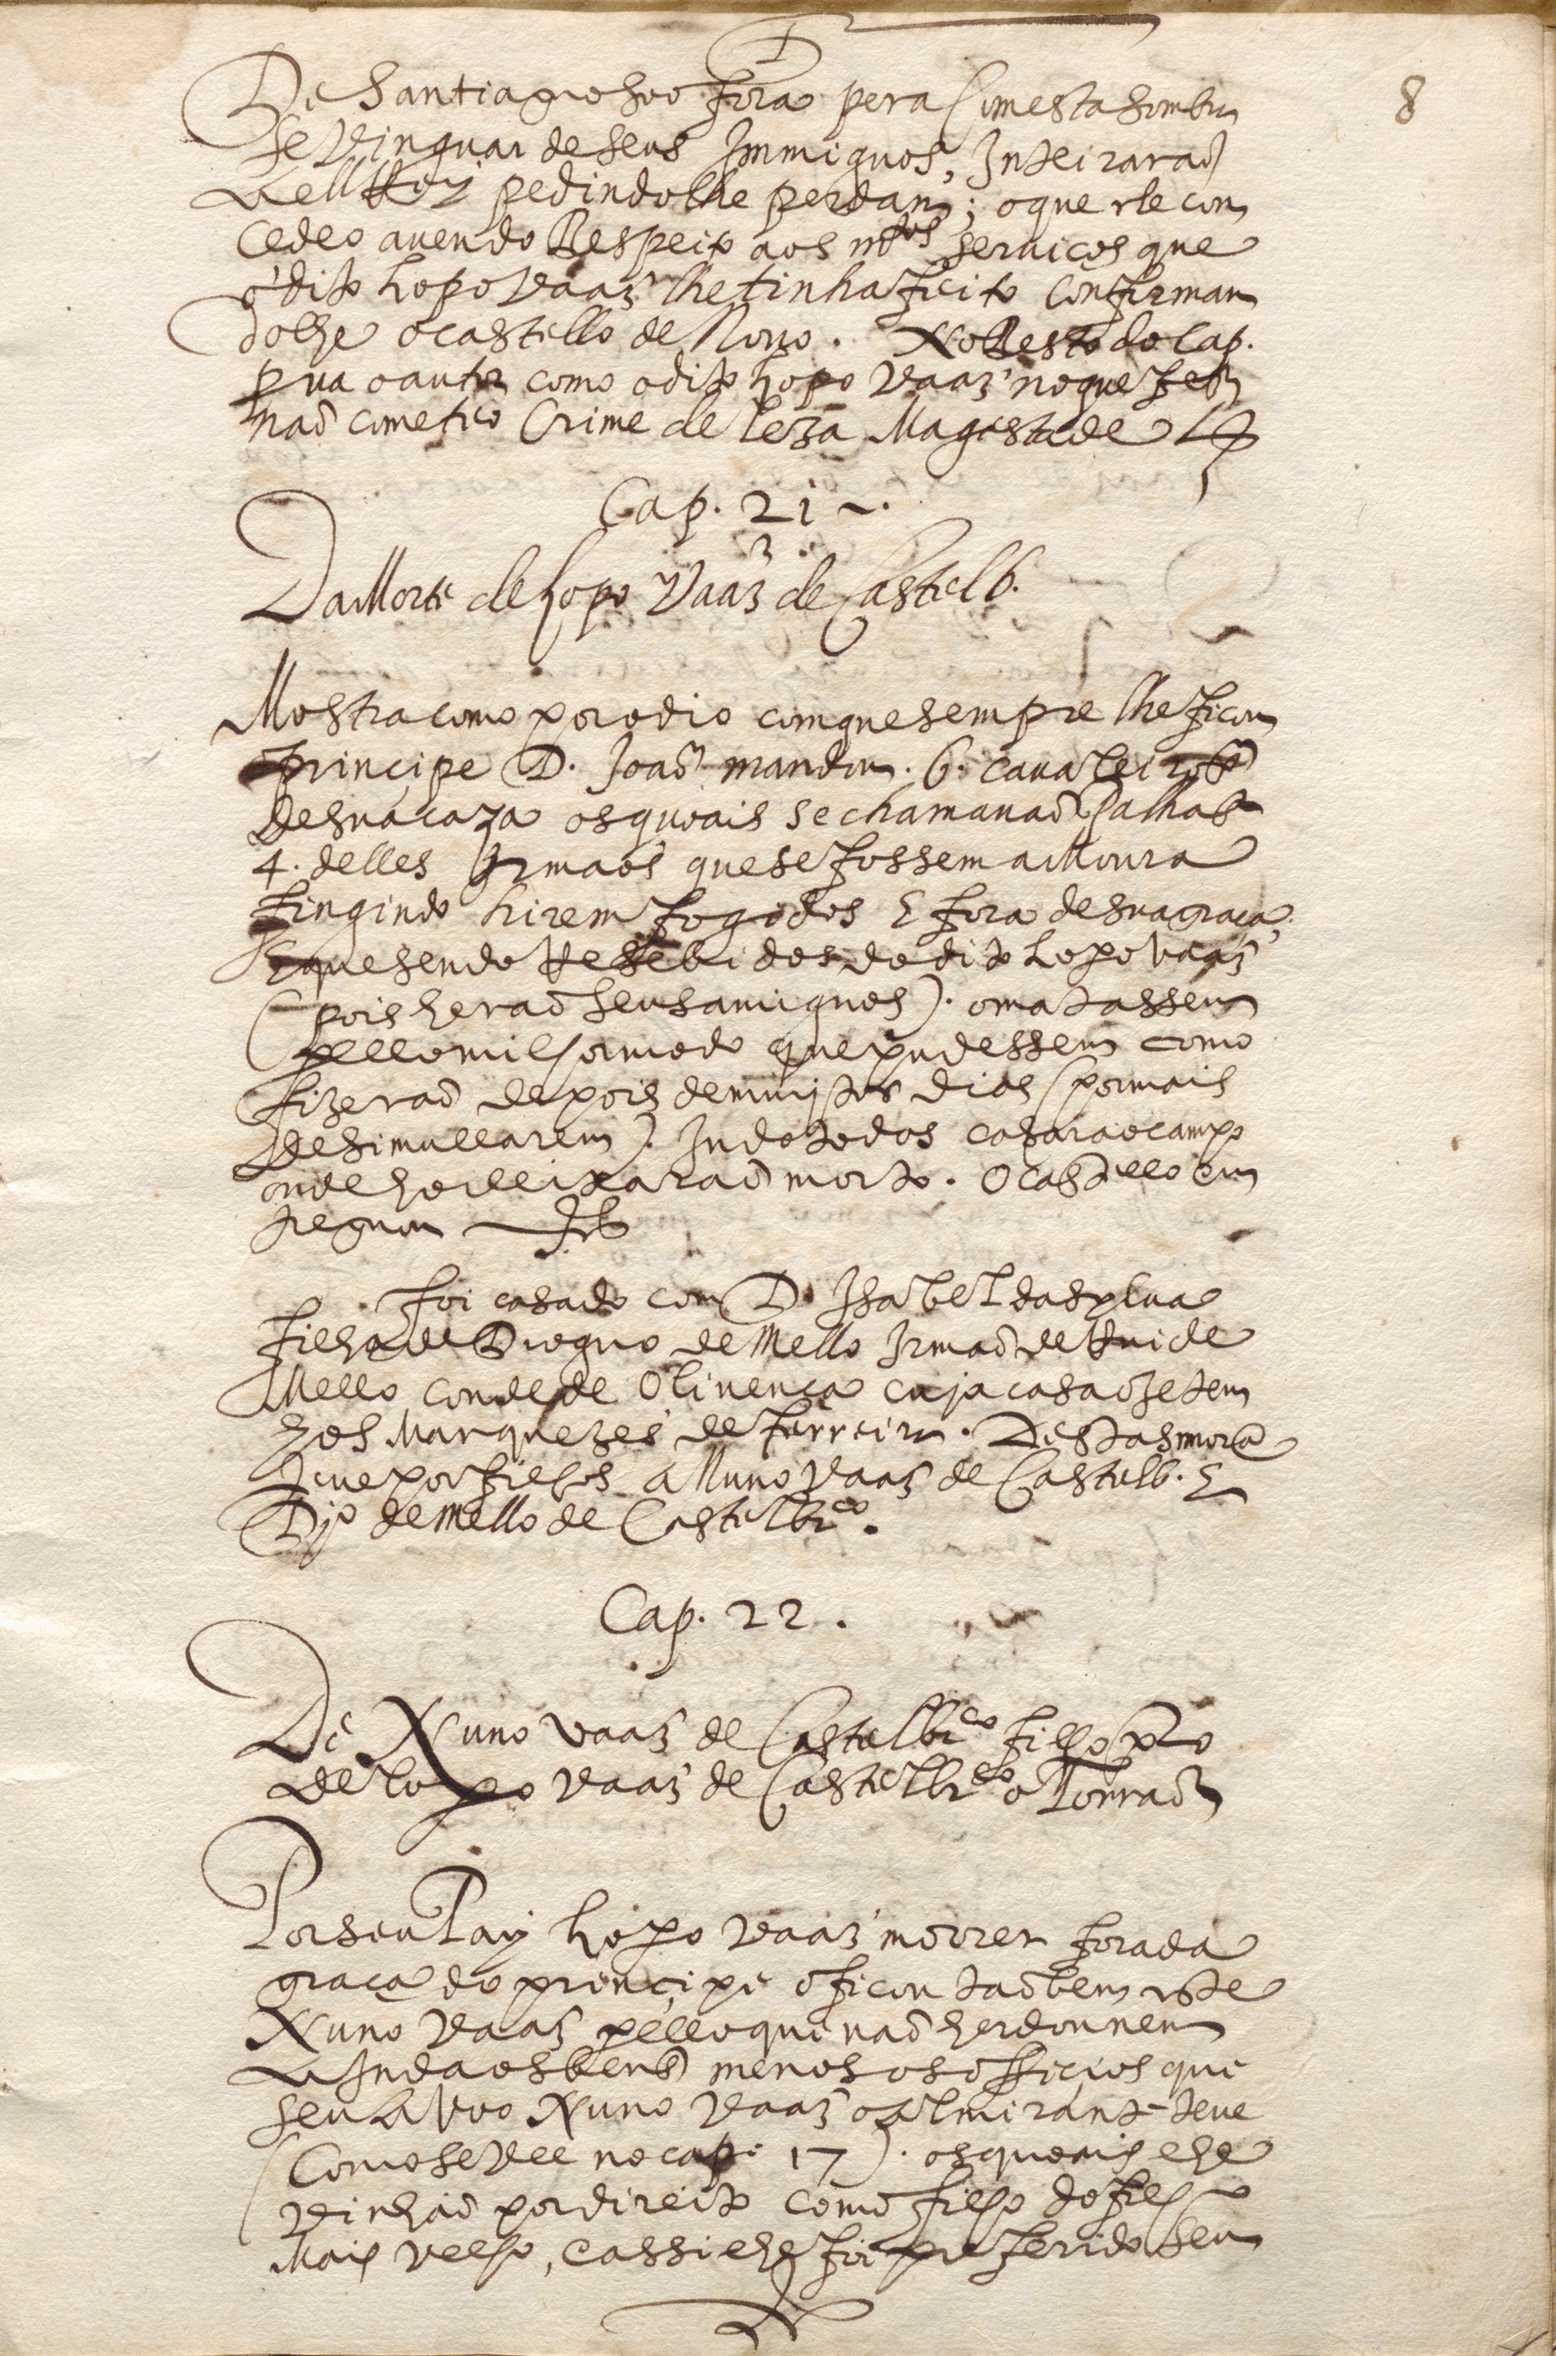 8
De Santiago hoo fora pera com esta sombra
se vinguar de seus Immiguos, Inteirarad
a ell Rey pedindolhe perdam; o que elle con
cedeo auendo Respeito aos mtos seruicos que
o dito Lopo Vaaz lhe tinha feito confirman
dolhe o castello de Nouo. No Resto do Cap.
prua o autor como o dito Lopo Vaaz no que fez
nad cometeo Crime de leza Magestade
Cap. 21 ~.
Da Morte de Lopo Vaaz de Castelb.
Mostra como por odio com que sempre lhe ficou
o principe D. Joaõ mandou .6. caualeiros
de sua caza os quoais se chamauaõ Palhas
4. delles Irmaos que se fossem a Moura
fingindo hirem fogidos E fora de sua graca.
E que sendo Resebidos do dito Lopo Vaaz
(pois heraõ seus amiguos). o matassem
pello milhor modo que pudessem como
fizeraõ depois de mujtos dias (por mais
desimullarem). Indo todos casar ao campo
onde ho deixaraõ morto. O castello en
tregou
foi casado com D. Isabel da sylua
filha de Dioguo de Mello Irmaõ de Rui de
Mello conde de Oliuenca cuja casa oje tem
hos Marquezes de ferreira. Desta smora
teue por filhos a Nuno Vaaz de Castelb. E
Do de Mello de Castelbrco.
Cap. 22.
De Nuno Vaaz de Castelbrco filho pro
de Lopo Vaaz de Castelbrco o Torraõ
Por seu Pay Lopo Vaaz morrer fora da
graca do principe o ficou taõbem este
Nuno Vaaz pello que naõ herdou nem
ainda os bens menos os officios que
seu Avoo Nuno Vaaz o almirante teue
(Como se vee no cap. 17). os quoais lhe
vinhaõ por direito como filho do filho
Mais velho, e assi lhe foi preferido seu